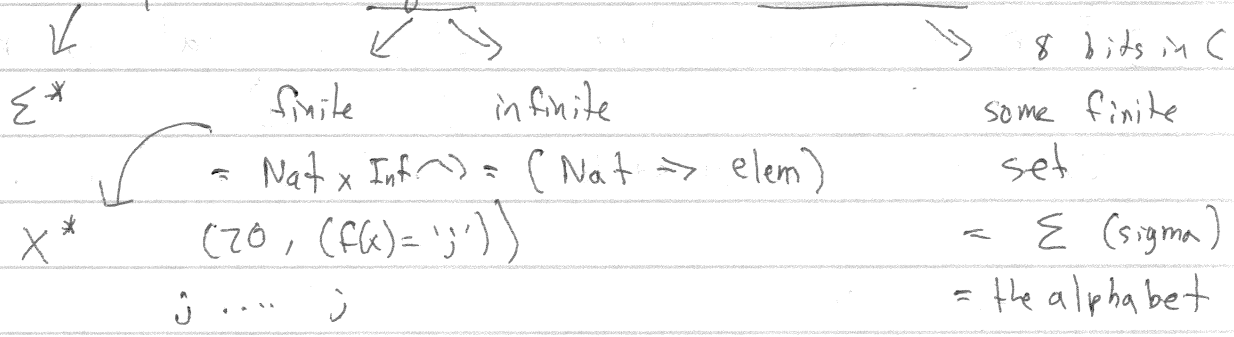 8 bits in C
Σ* finite infinite some finite
= Nat x Inf = (Nat -> elem) set
X* (20, (f(x)='j')) = Σ (sigma)
j .... j = the alphabet